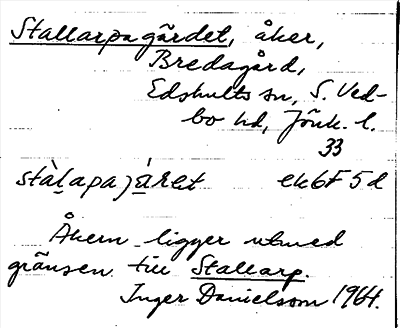 Stallarpagärdet, åker,
Bredagård,
Edshults sn, S. Ved-
bo hd, Jönk. l.
33
stàl̠apajá̠ret ek6F5d
Åkern ligger utmed
gränsen till Stallarp.
Inger Danielsson 1964.